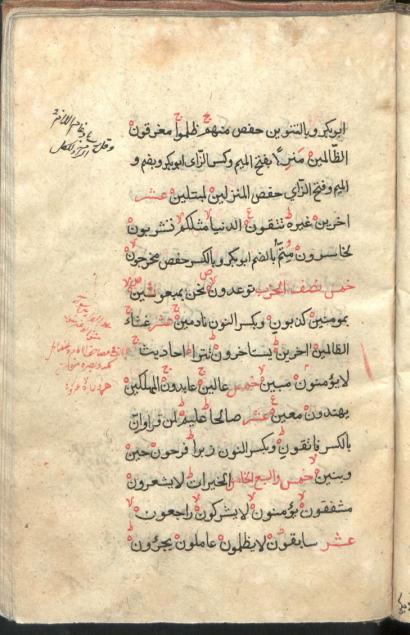 ابوبكر وبالتنوين حفص منهم ظلموا مغرقون
الظالمين منزلا بفتح الميم وكسر الزاى ابوبكر وبضم
الميم وفتح الزاى حفص المنزلين لمبتلين عشر
اخرين غيره تتقون الدنيا مثلكم تشربون
لخاسرون متم بالضم ابوبكر وبالكسر حفص مخرجون
خمس نصف الحزب توعدون نحن بمبعوثين
بمومنين كذبون وبكسر النون نادمين عشر غثاء
الظالمين اخرين يستاخرون تترا احاديث
لايؤمنون مبين خمس عالين عابدون المهلكين
يهتدون معين عشر صالحا عليم ان تراوان
بالكسر فاتقون وبكسر النون زبرا فرحون حين
وبنين خمس والسبع الخامس الخيرات لايشعرون
مشفقون يؤمنون لايشركون راجعون
عشر سابقون لايظلمون عاملون يجرؤن